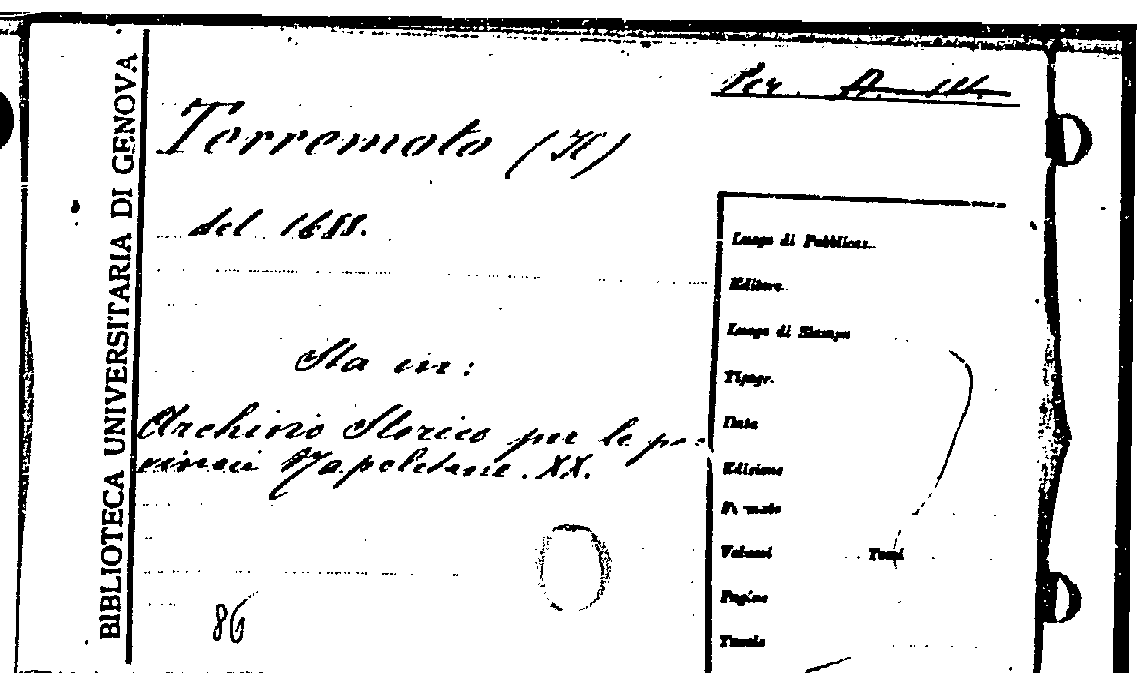 BIBLIOTECA UNIVERSITARIA DI GENOVA
Per. A.
Terremoto (Il)
del 1688.
Sta in:
Archivio Storico per le pro
vincie Napoletane. XX.
86
Luogo di Pubblicaz.
Editore
Luogo di Stampa
Tipogr.
Data
Edizione
Formato
Volumi Tomi
Pagine
Tavole